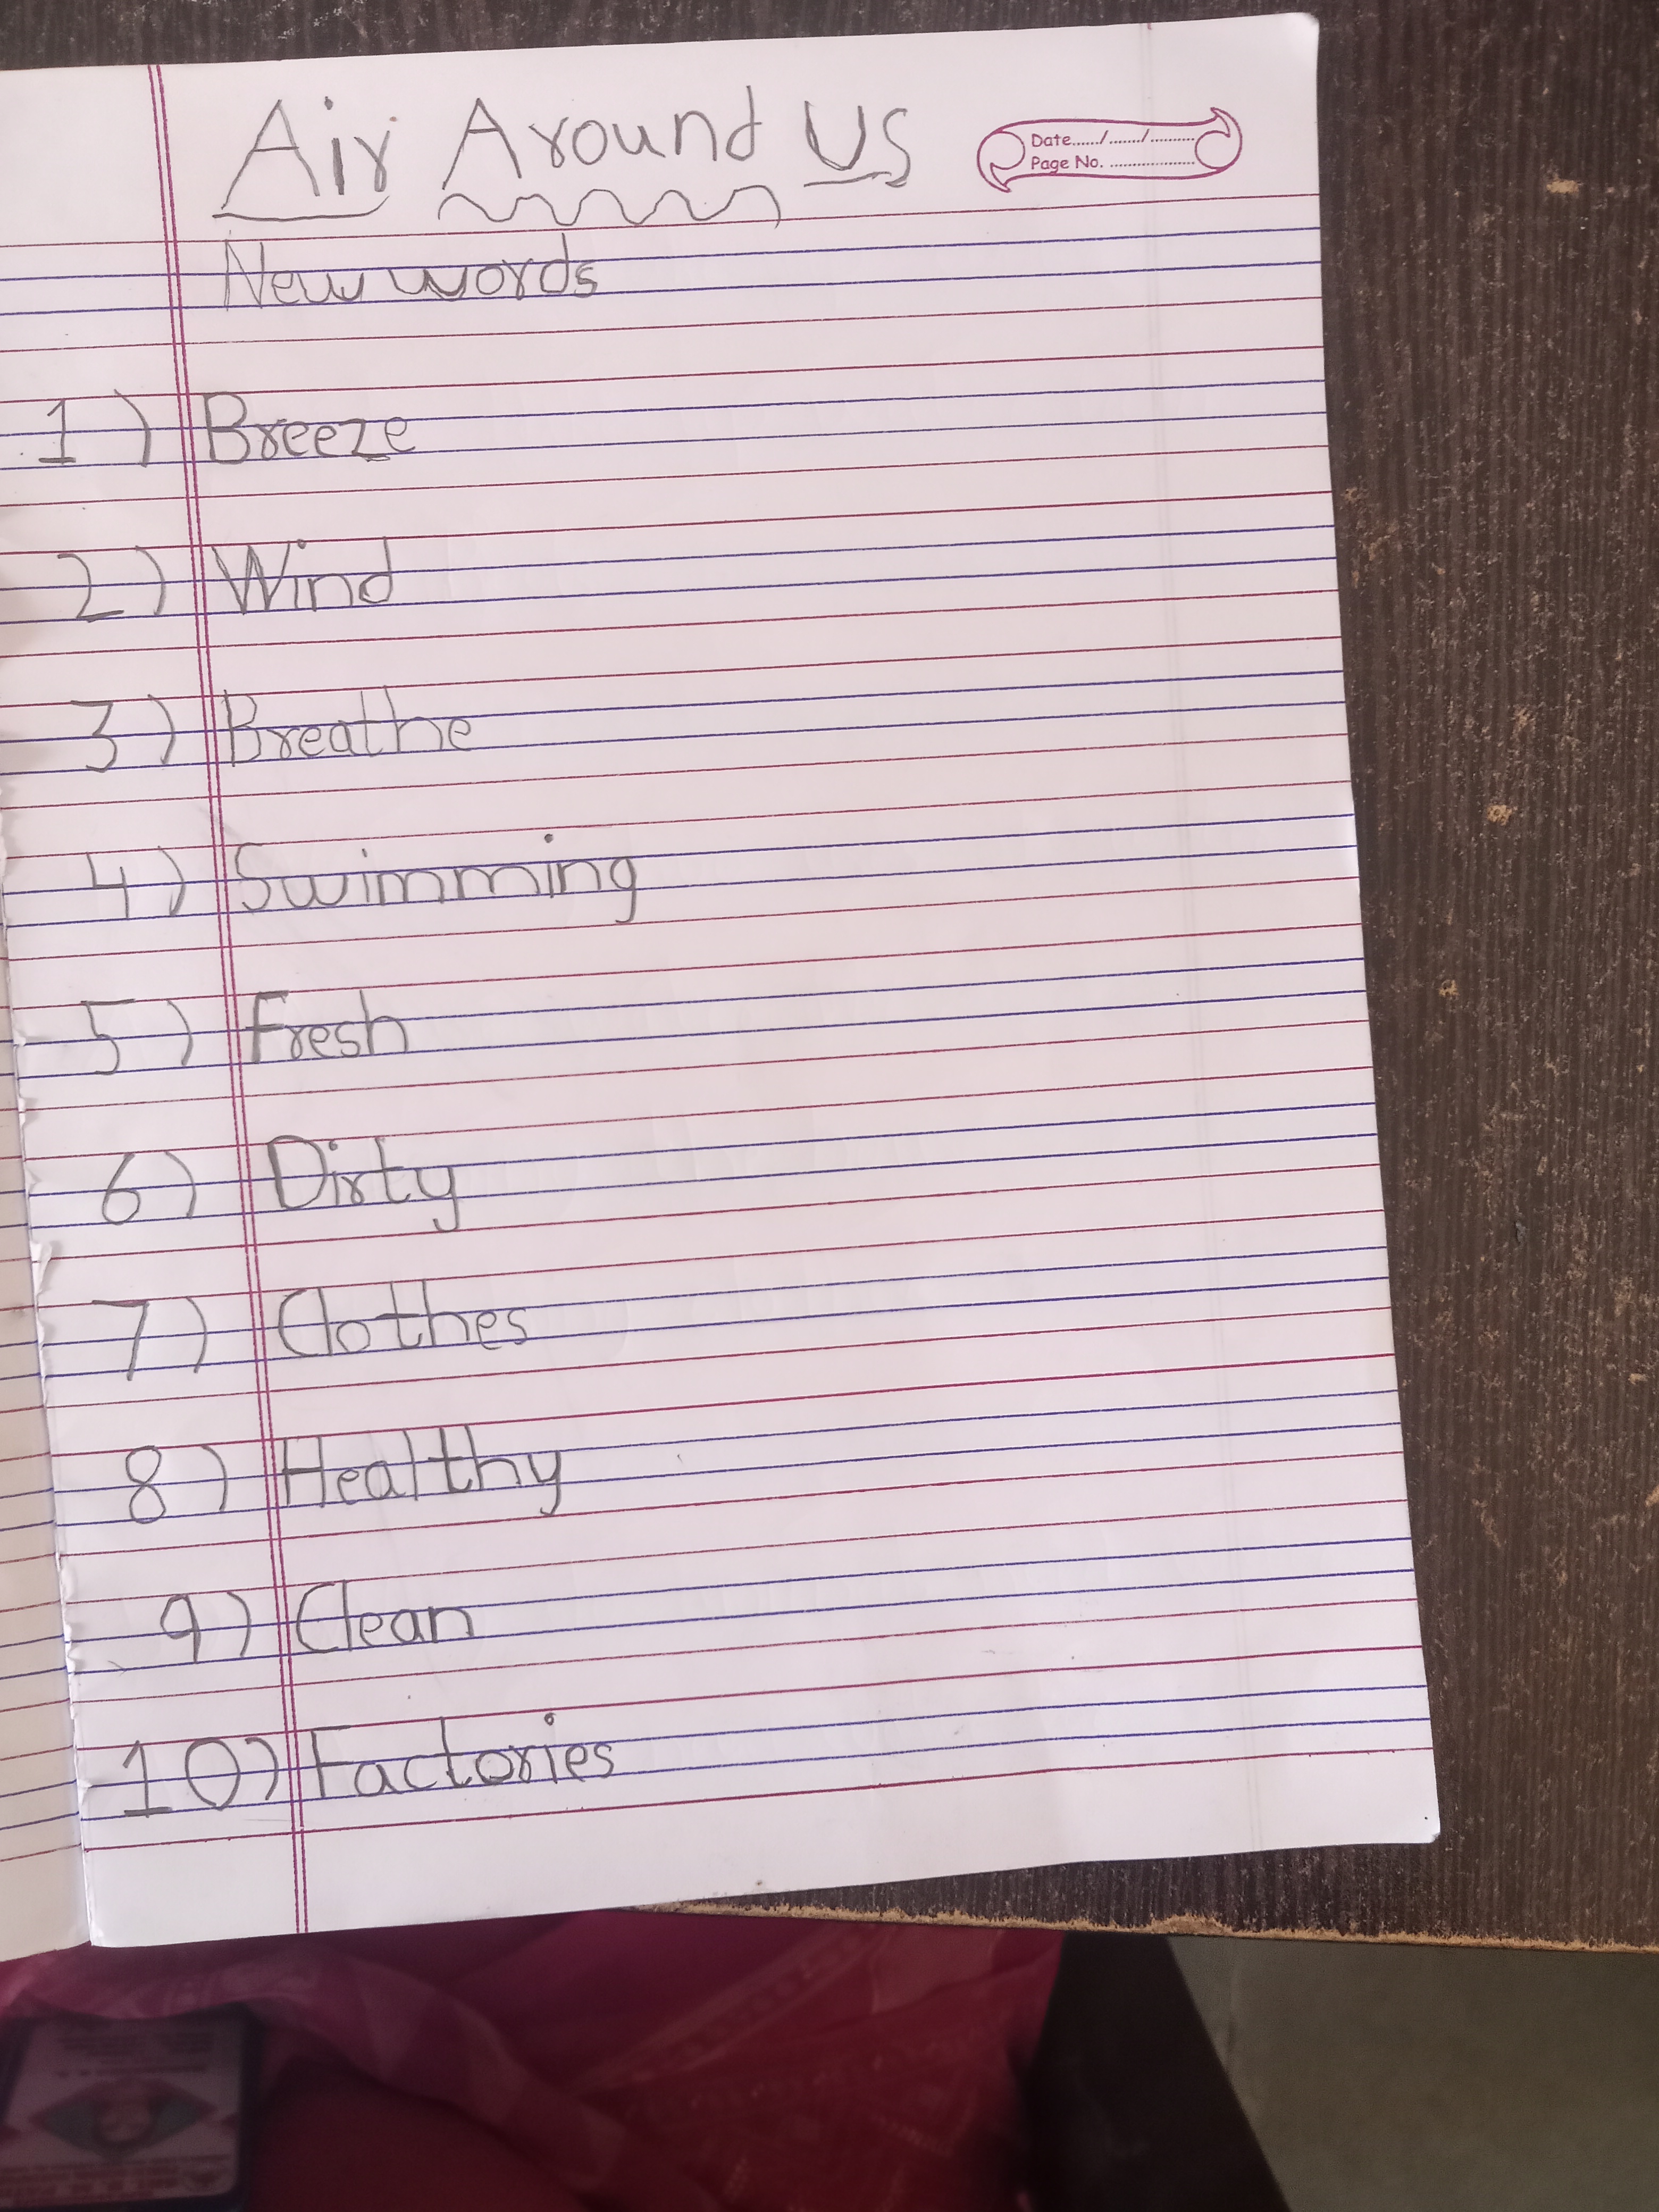 Air Around Us
Date....../......./..........
Page No. ....................
New words
1) Breeze
2) Wind
3) Breathe
4) Swimming
5) Fresh
6) Dirty
7) Clothes
8) Healthy
9) Clean
10) Factories